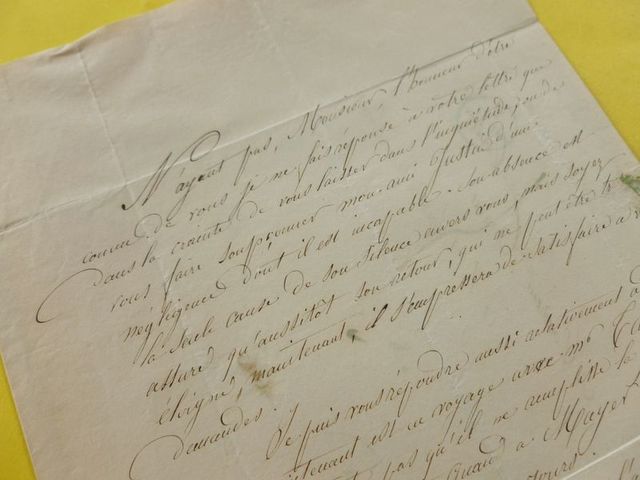 N'ayant pas, Monsieur, l'honneur d'être
connu de vous je ne fais réponse à votre lettre que
dans la crainte de vous laisser dans l'inquiétude, ou de
vous faire soupçonner mon ami Justin d'une
négligence dont il est incapable. Son absence est
la seule cause de son silence envers vous, mais soyez
assuré qu'aussitôt son retour, qui ne peut être
éloigné, maintenant, il s'empressera de satisfaire à
demandes.
Je puis vous répondre aussi relativement à
est en voyage avec mr
pas qu'il ne remplisse
Quand à Mayer